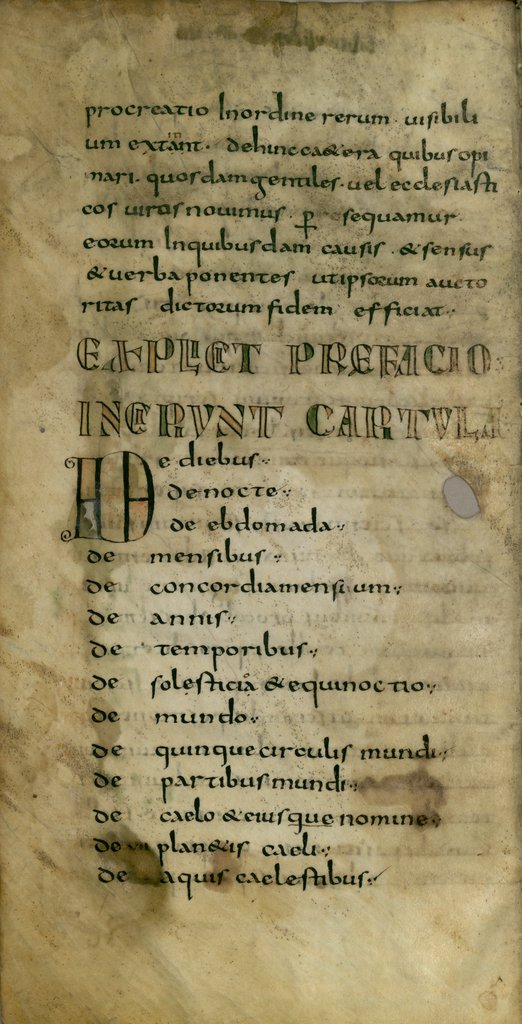 procreatio In ordine rerum · uisibili
um extant · dehinc ca&era quibus opi
nari · quosdam gentiles · uel ecclesiasti
cos uiros nouimus · ꝑ sequamur
eorum In quibusdam causis · & sensus
& uerba ponentes ut ipsorum aucto
ritas dictorum fidem efficiat ·
EXPLICIT PREFACIO
INCIPIUNT CARTULA
De diebus ·
de nocte ·
de ebdomada ·
de mensibus ·
de concordia mensium ·
de annis ·
de temporibus ·
de solesticia & equinoctio ·
de mundo ·
de quinque circulis mundi ·
de partibus mundi ·
de caelo & eiusque nomine ·
de vii plan&is caeli ·
de aquis caelestibus ·